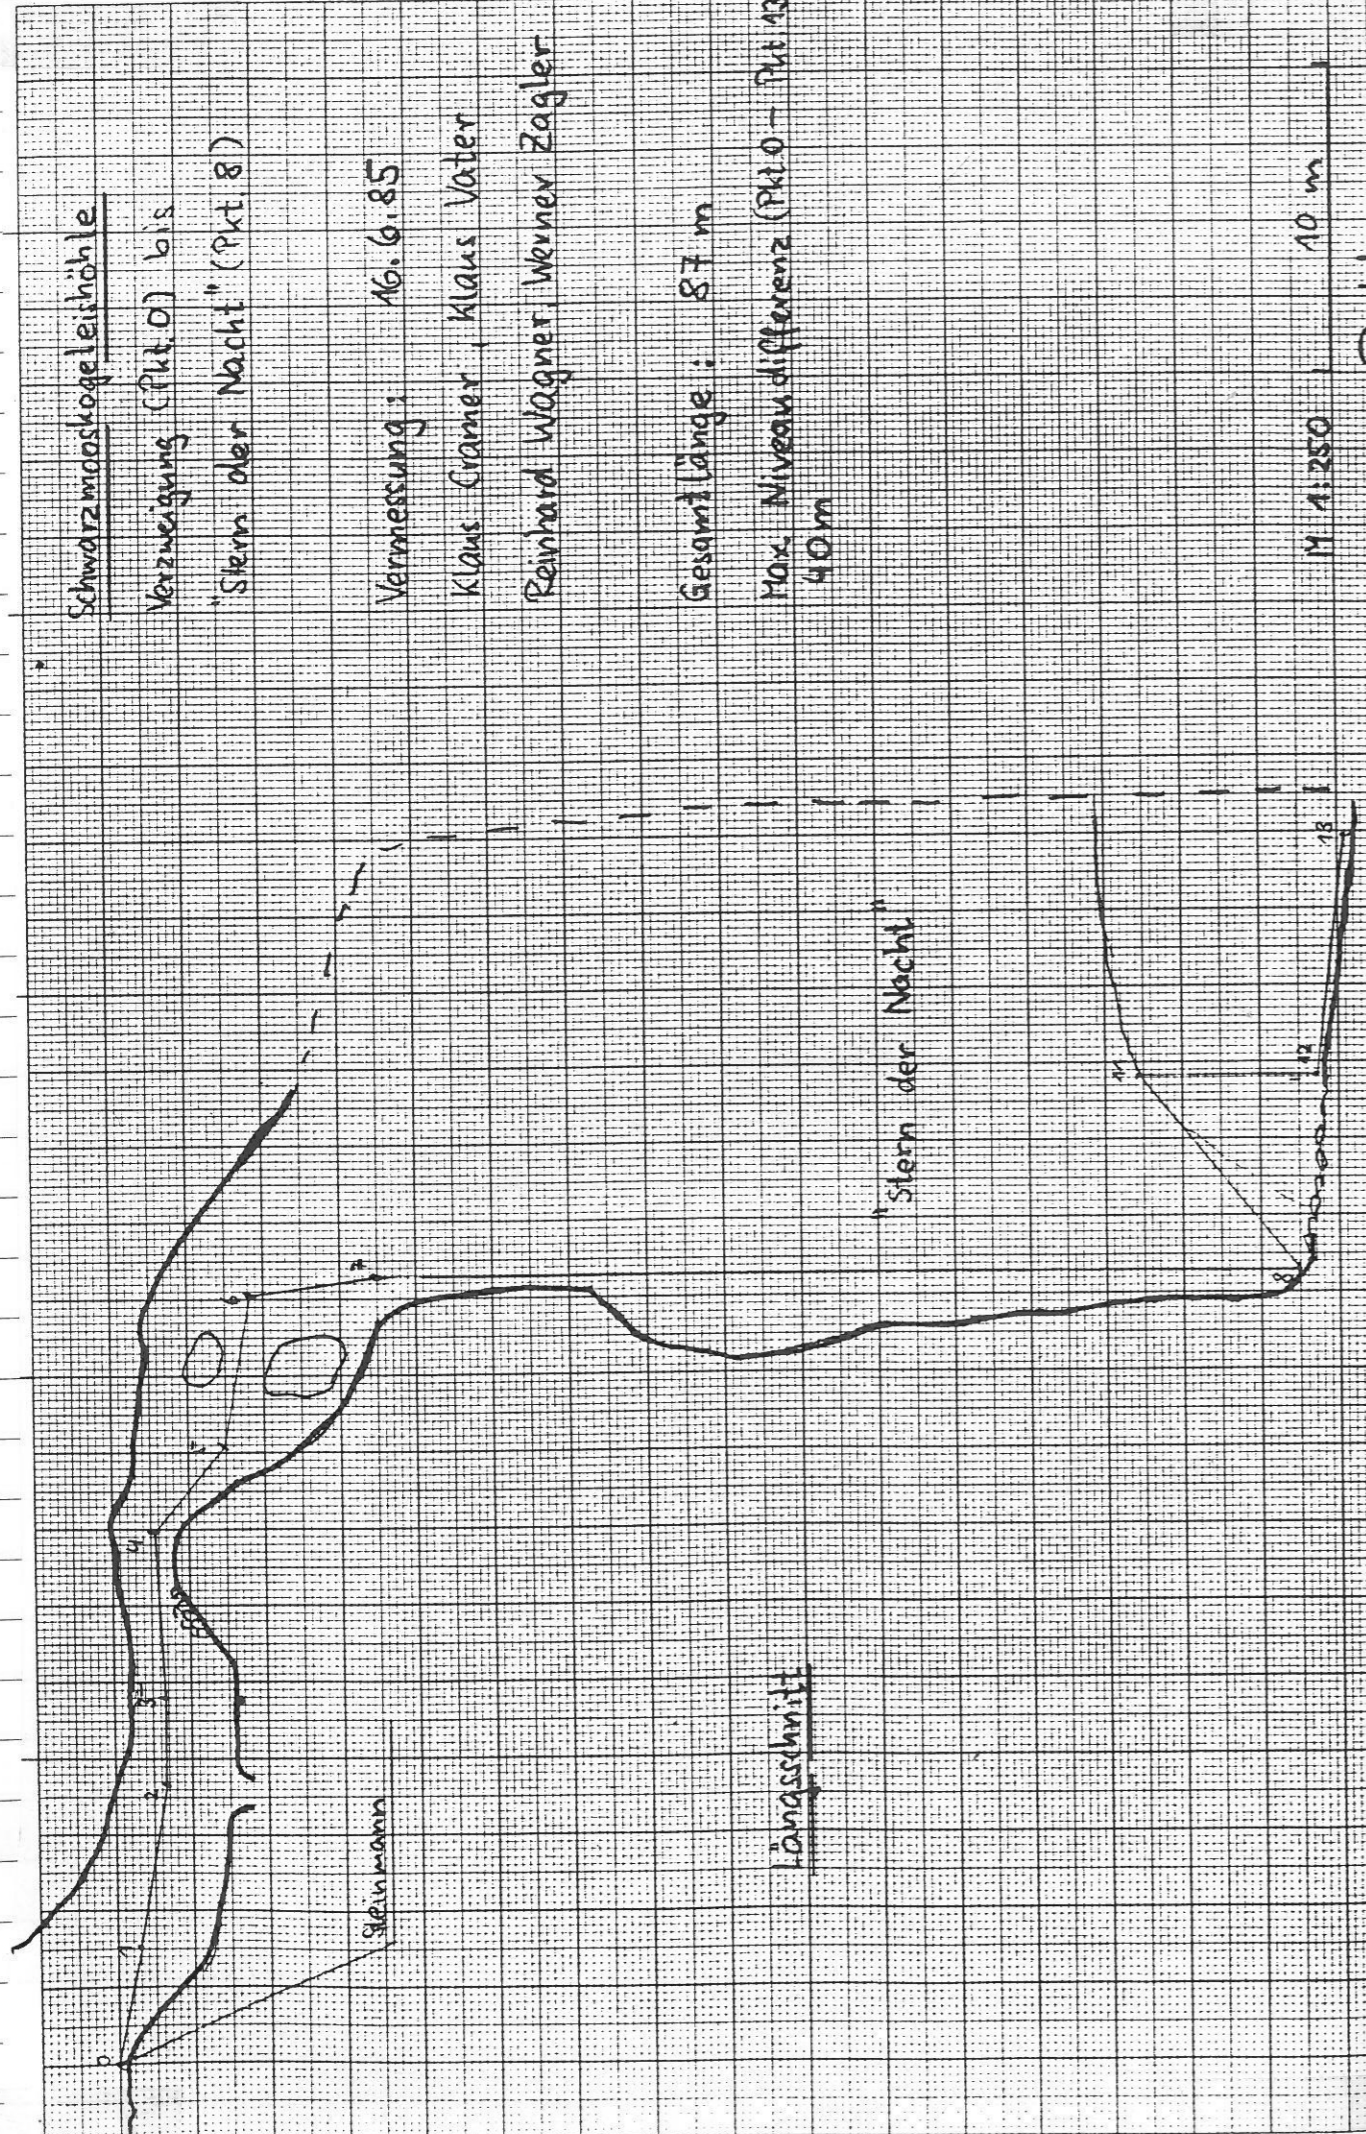 Schwarzmooskogeleishöhle
Verzweigung (Pkt. 0) bis
"Stern der Nacht" (Pkt. 8)
Vermessung: 16.6.85
Klaus Cramer, Klaus Vater
Reinhard Wagner, Werner Zagler
Gesamtlänge: 87 m
Max. Niveaudifferenz (Pkt.0 - Pkt.13
40 m
0
1
2
3
4
5
6
7
8
11
12
13
Steinmann
"Stern der Nacht"
Längsschnitt
M 1:250 10 m